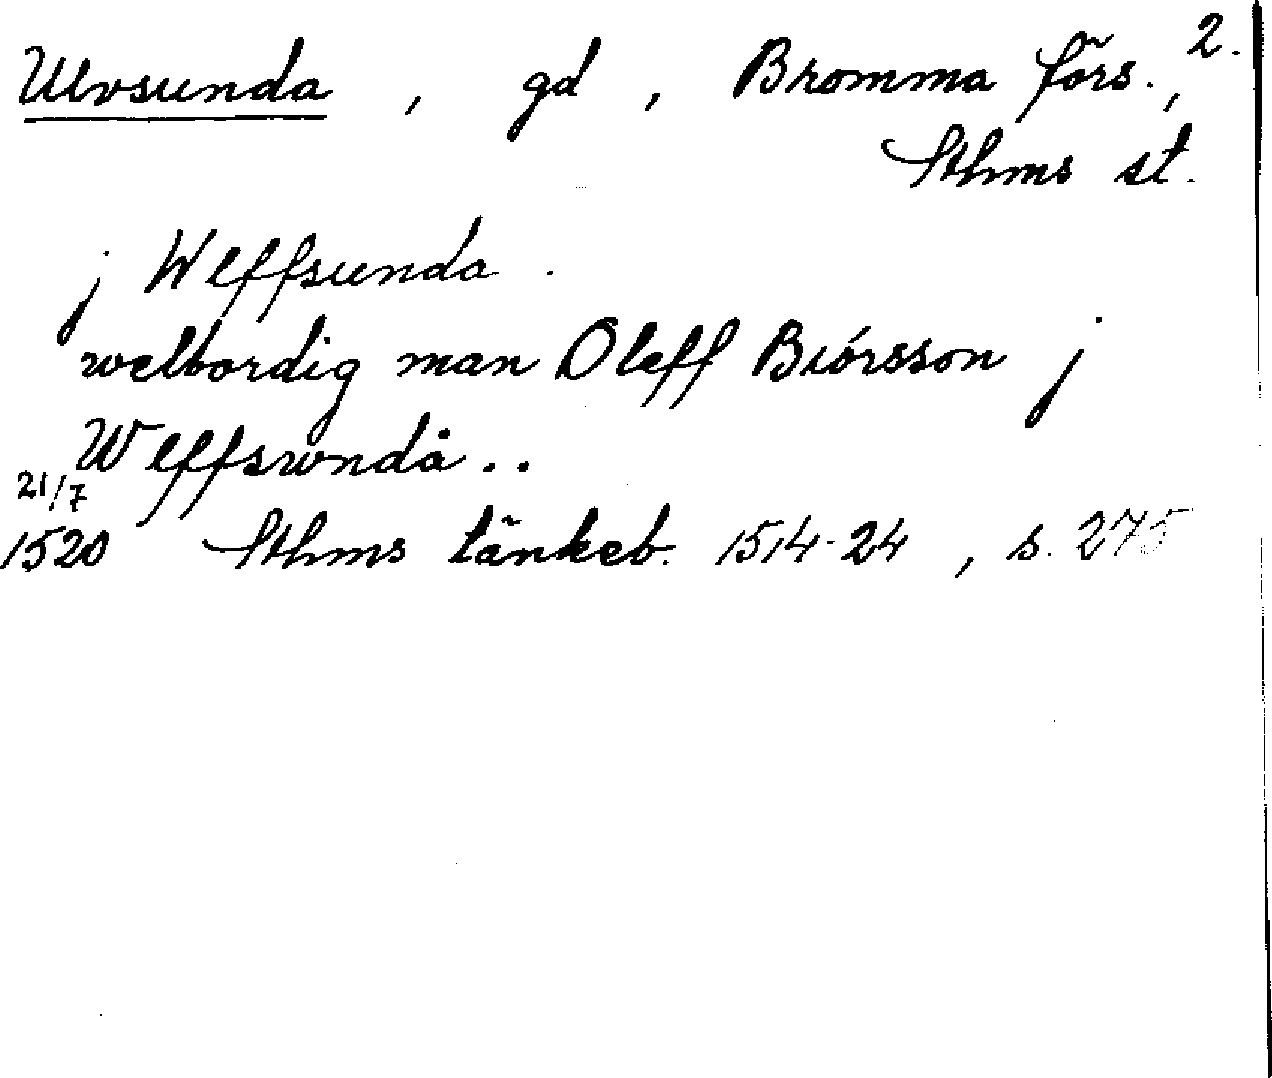 Ulvsunda, gd, Bromma förs., 2.
Sthms st.
j Wlffsunda.
welbordig man Oleff Biórsson j
Wlffswndå..
21/7
1520 Sthms tänkeb. 1514-24, s. 275